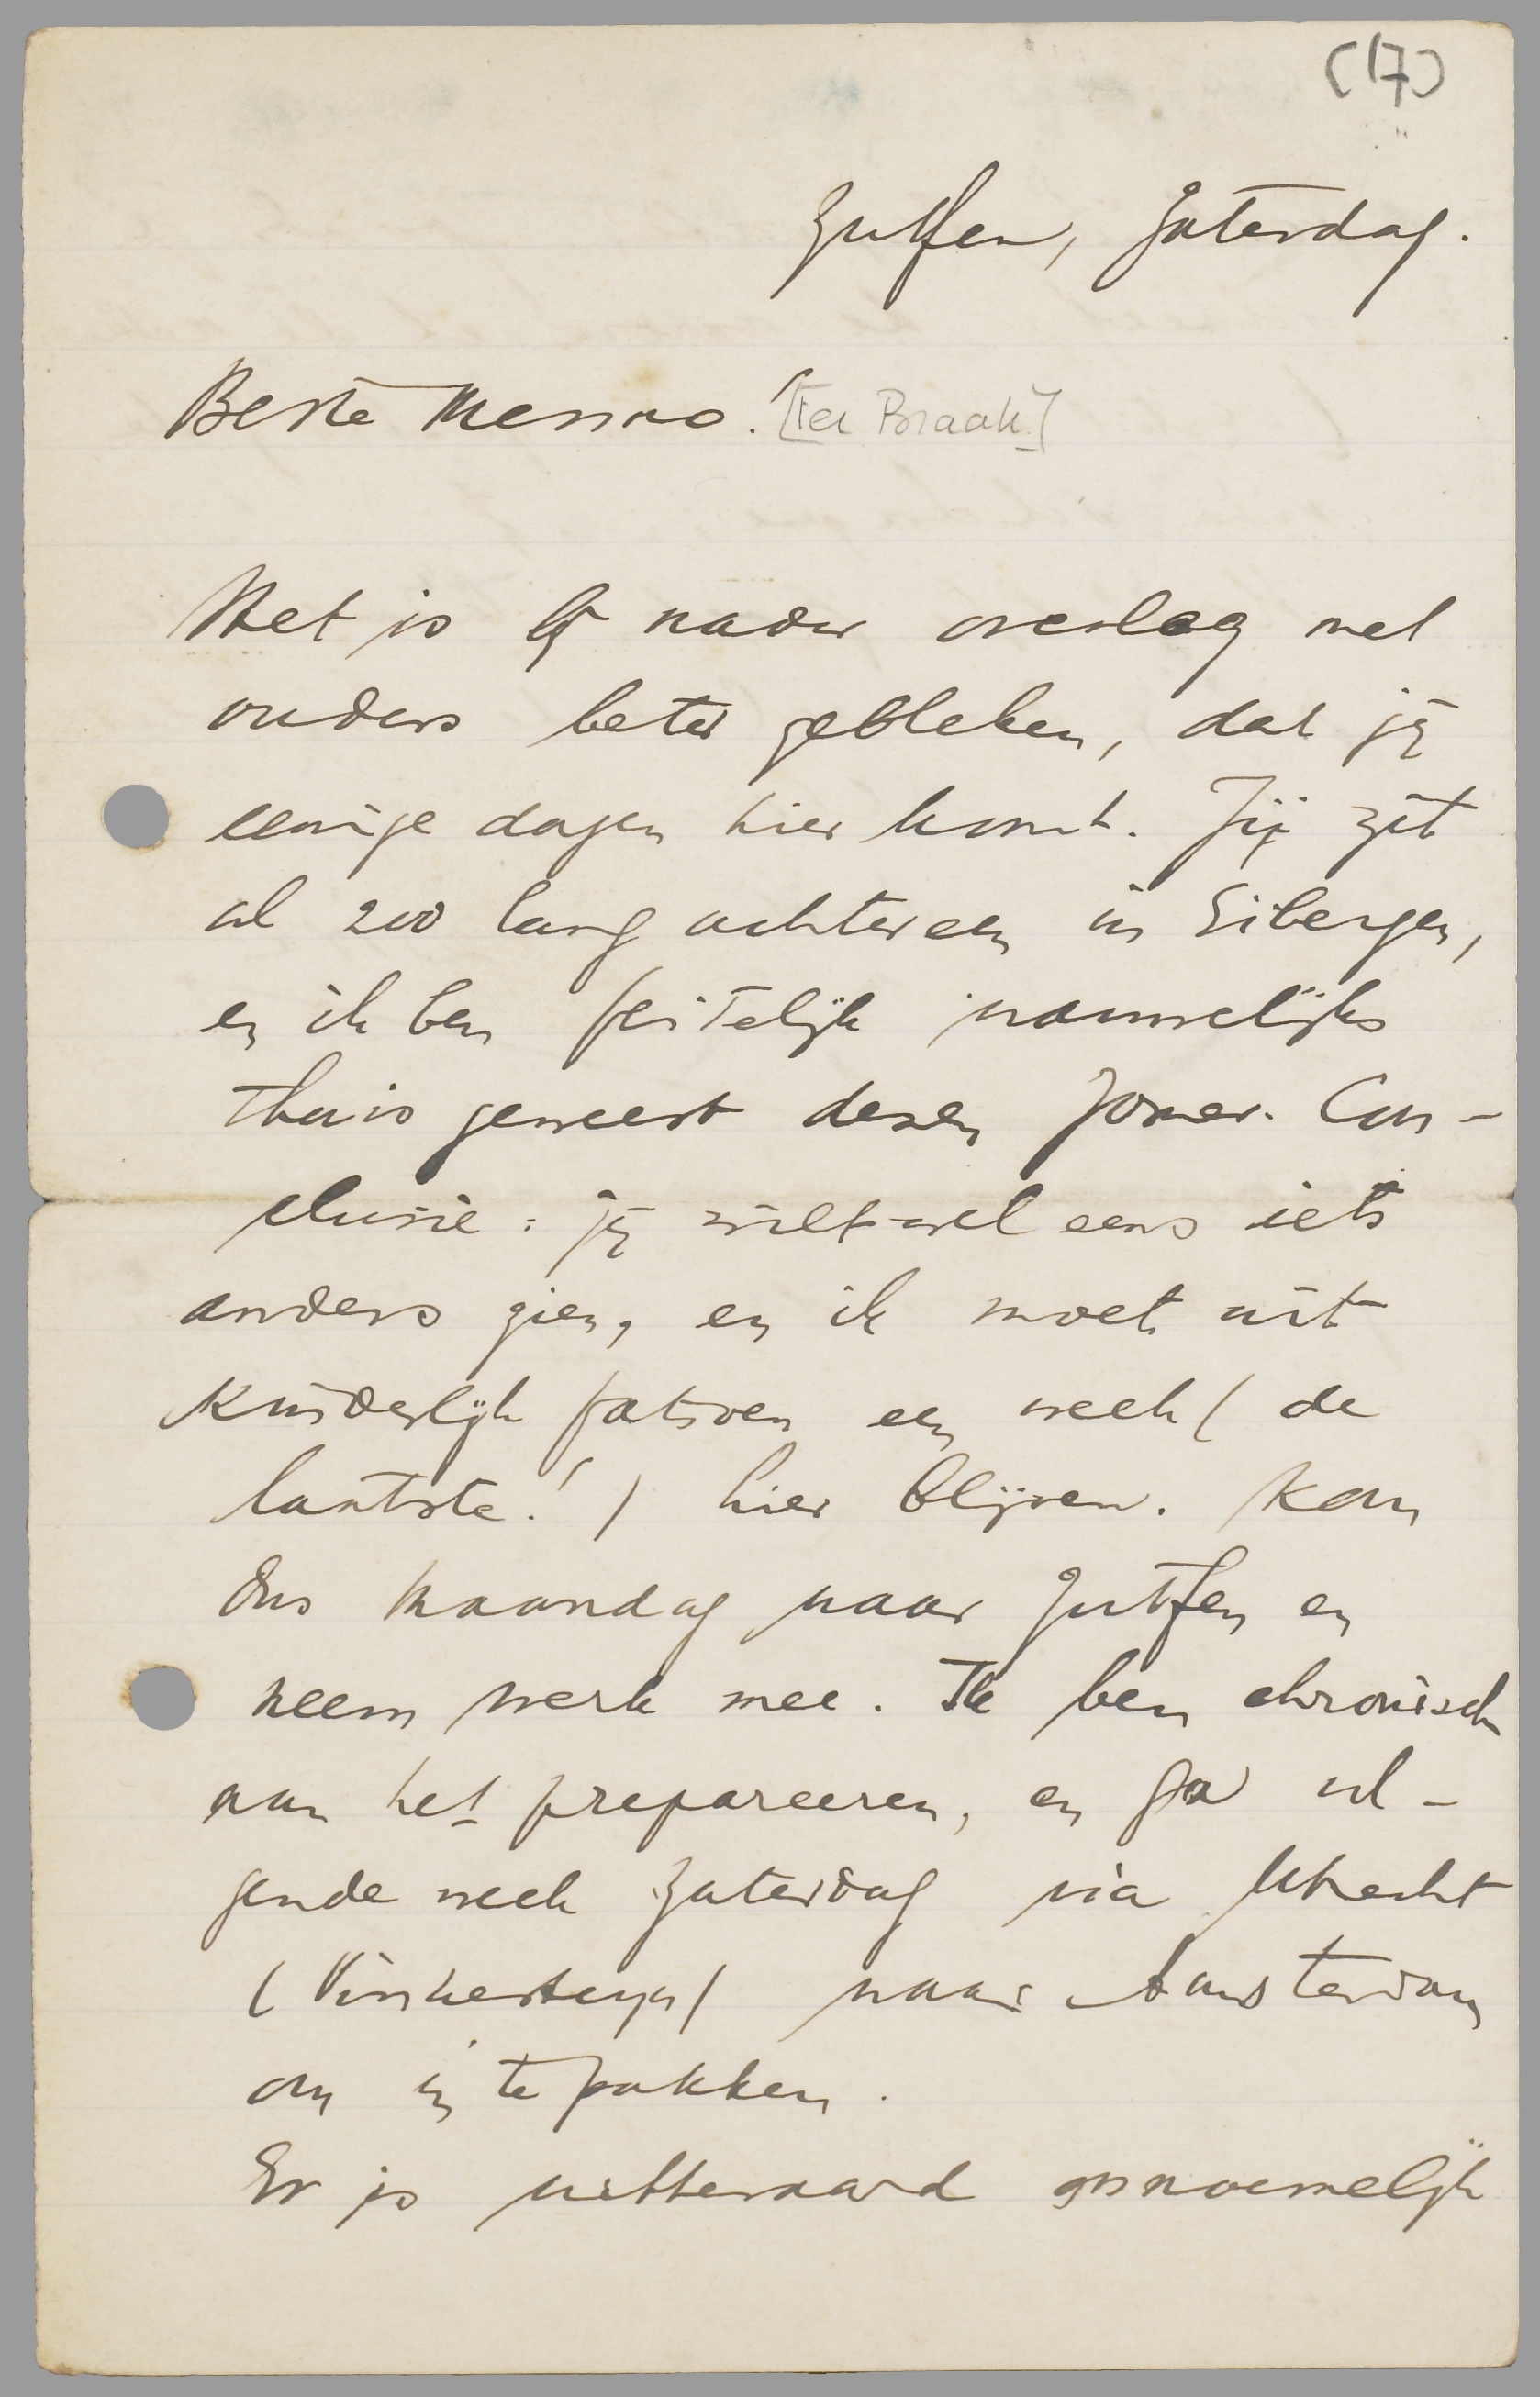 (17)
Zutfen, Zaterdag.
Beste Menno! [ter Braak]
Het is bij nader overleg met
ouders beter gebleken, dat jij
eenige dagen hier komt. Jij zit
al zoo lang achtereen in Eibergen,
en ik ben feitelijk nauwelijks
thuis geweest dezen zomer. Con-
clusie: jij wilt wel eens iets
anders zien, en ik moet uit
kinderlijk fatsoen een week (de
laatste!) hier blijven. Kom
dus Maandag naar Zutfen en
neem werk mee. Ik ben chronisch
aan het prepareeren, en ga vol-
gende week Zaterdag via Utrecht
(Vinkesteyn) naar Amsterdam
om in te pakken.
Er is uitteraard onnoemelijk